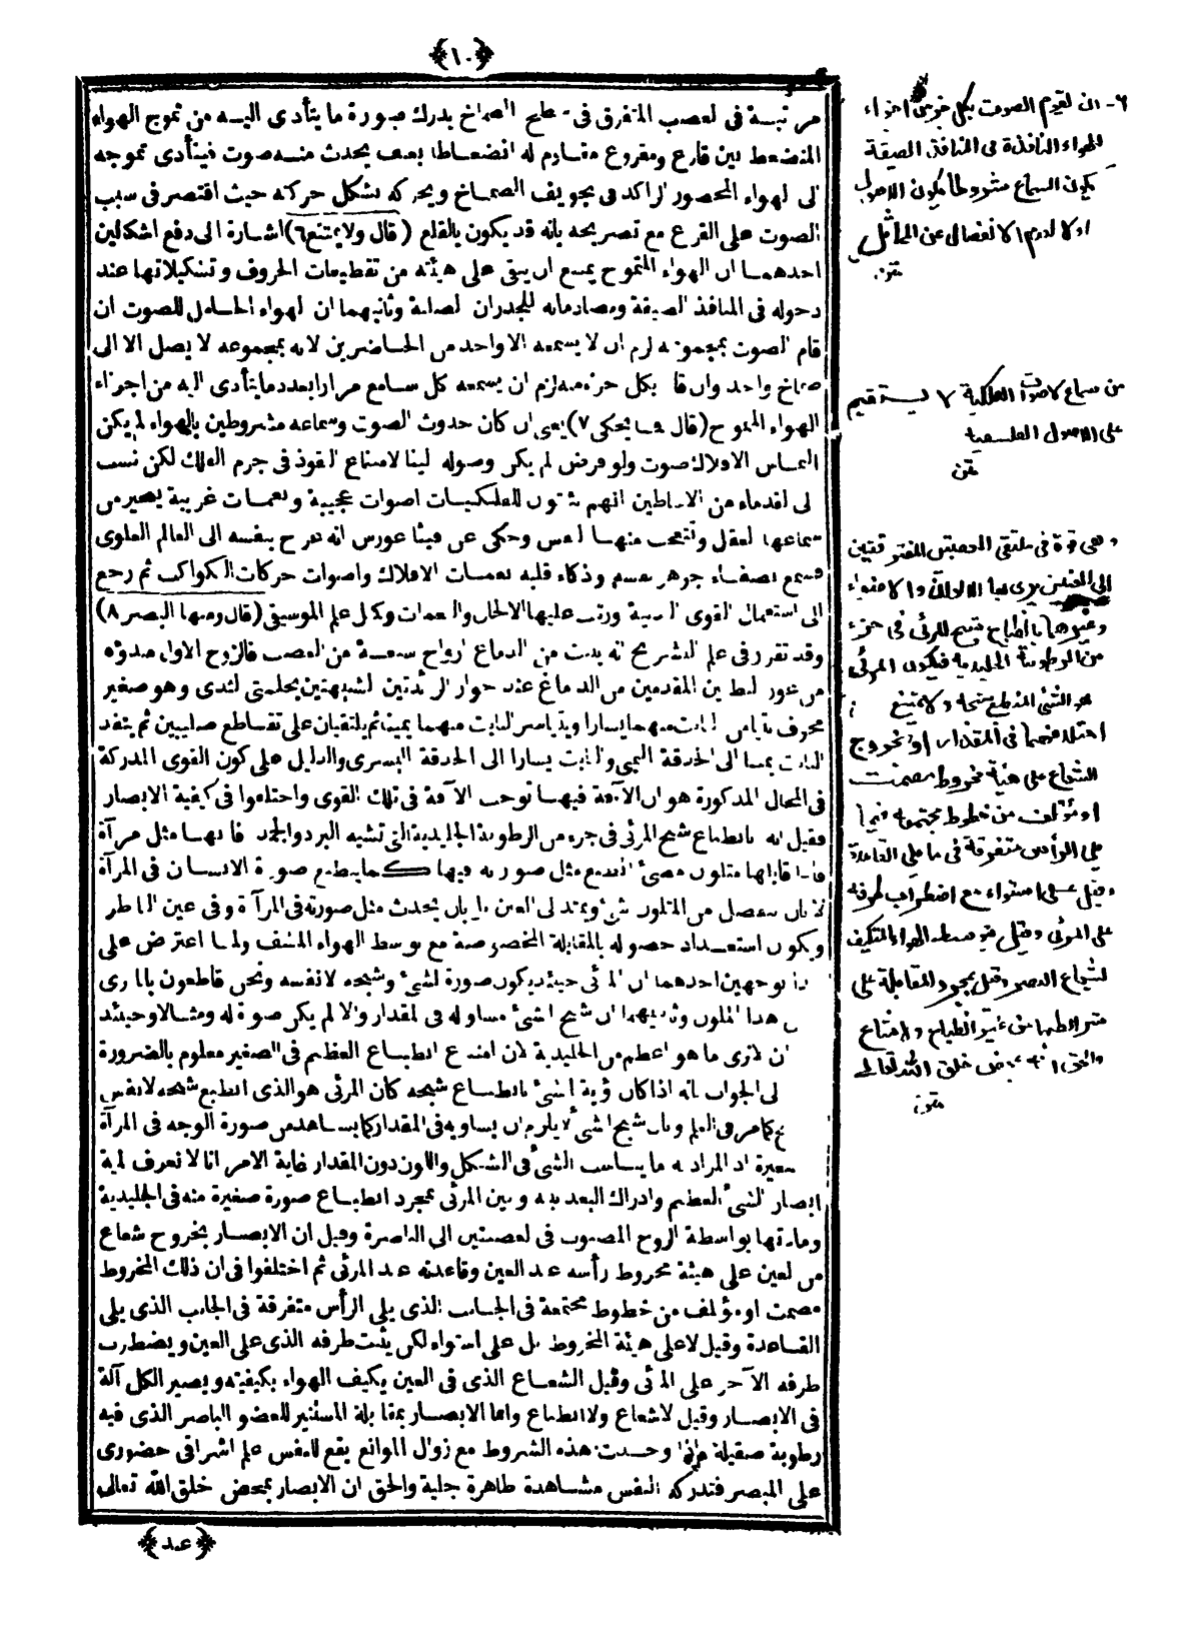 ﴿١٠﴾
مرتبة فى العصب المتفرق فى سطح الصماخ يدرك صورة ما يتأدى اليه من تموج الهواء
المنضغط بين قارع ومقروع مقاوم له انضغاطا بعنف يحدث منه صوت فيتأدى تموجه
الى الهواء المحصور الراكد فى تجويف الصماخ ويحركه بشكل حركته حيث اقتصر فى سبب
الصوت على القرع مع تصريحه بانه قد يكون بالقلع (قال ولا يمتنع ٦) اشارة الى دفع اشكالين
احدهما ان الهواء المتموج يمتنع ان يبقى على هيئته من تقطيعات الحروف وتشكيلاتها عند
دخوله فى المنافذ الضيقة ومصادماته للجدران الصلبة وثانيهما ان الهواء الحامل للصوت ان
قام الصوت بمجموعه لزم ان لا يسمعه الا واحد من الحاضرين لانه بمجموعه لا يصل الا الى
صماخ واحد وان قا بكل جزء منه لزم ان يسمعه كل سامع مرارا بعدد ما يتأدى اليه من اجزاء
الهواء المتموج (قال وما يحكى ٧) يعنى ان كان حدوث الصوت وسماعه مشروطين بالهواء لم يكن
لتماس الافلاك صوت ولو فرض لم يكن وصوله الينا لامتناع النفوذ فى جرم الفلك لكن نسب
الى القدماء من الاساطين انهم يثبتون للفلكيات اصوات عجيبة ونغمات غريبة يتحير من
سماعها العقل وتتعجب منها النفس وحكى عن فيثاغورس انه عرج بنفسه الى العالم العلوى
فسمع بصفاء جوهر نفسه وذكاء قلبه نغمات الافلاك واصوات حركات الكواكب ثم رجع
الى استعمال القوى البدنية ورتب عليها الالحان والنغمات وكمل علم الموسيقى (قال ومنها البصر ٨)
وقد تقرر فى علم التشريح انه ينبت من الدماغ ازواج سبعة من العصب فالزوج الاول مبدؤه
من غور البطنين المقدمين من الدماغ عند جوار الزائدتين الشبيهتين بحلمتى الثدى وهو صغير
مجوف يتياس النابت منهما يسارا ويتياسر النابت منهما يمينا ثم يلتقيان على تقاطع صليبى ثم ينفذ
النابت يمينا الى الحدقة اليمنى والنابت يسارا الى الحدقة اليسرى والدليل على كون القوى المدركة
فى المحال المذكورة هو ان الآفة فيها توجب الآفة فى تلك القوى واختلفوا فى كيفية الابصار
فقيل انه بانطباع شبح المرئى فى جزء من الرطوبة الجليدية التى تشبه البرد والجمد فانها مثل مرآة
فاذا قابلها متلون مضئ انطبع مثل صورته فيها كما ينطبع صورة الانسان فى المرآة
لا بان ينفصل من المتلون شئ ويمتد الى العين بل بان يحدث مثل صورته فى المرآة وفى عين الناظر
ويكون استعداد حصوله بالمقابلة المخصوصة مع توسط الهواء المشف ولما اعترض على
ذا بوجهين احدهما ان المرئى حينئذ يكون صورة الشئ وشبحه لا نفسه ونحن قاطعون بانا نرى
هذا الملون وثانيهما ان شبح الشئ مساو له فى المقدار والا لم يكن صورة له ومثالا وحينئذ
ان لا نرى ما هو اعظم من الجليدية لان امتناع انطباع العظيم فى الصغير معلوم بالضرورة
الى الجواب بانه اذا كان رؤية الشئ بانطباع شبحه كان المرئى هو الذى انطبع شبحه لا نفس
ح كما مر فى العلم وبان شبح الشئ لا يلزم ان يساويه فى المقدار كما يشاهد من صورة الوجه فى المرآة
صغيرة اذ المراد به ما يناسب الشئ فى الشكل واللون دون المقدار غاية الامر انا لا نعرف لمية
ابصار الشئ العظيم وادراك البعد بينه وبين المرئى بمجرد انطباع صورة صغيرة منه فى الجليدية
وما دتها بواسطة الروح المصبوب فى العصبتين الى الباصرة وقيل ان الابصار بخروج شعاع
من العين على هيئة مخروط رأسه عند العين وقاعدته عند المرئى ثم اختلفوا فى ان ذلك المخروط
مصمت او مؤلف من خطوط مجتمعة فى الجانب الذى يلى الرأس متفرقة فى الجانب الذى يلى
القاعدة وقيل لا على هيئة المخروط بل على استواء لكن يثبت طرفه الذى على العين ويضطرب
طرفه الآخر على المرئى وقيل الشعاع الذى فى العين يكيف الهواء بكيفيته ويصير الكل آلة
فى الابصار وقيل لا شعاع ولا انطباع وانما الابصار بمقابلة المستنير للعضو الباصر الذى فيه
رطوبة صقيلة فاذا وجدت هذه الشروط مع زوال الموانع يقع للنفس علم اشراقى حضورى
على المبصر فتدركه النفس مشاهدة ظاهرة جلية والحق ان الابصار بمحض خلق الله تعالى
﴿عند﴾
٦- ان يقوم الصوت بكل جزء من اجزاء
الهواء النافذة فى المنافذ الضيقة
يكون السماع مشروطا بكون الاصول
اولا لدوم الانفصالى عن الحامل
متن
من سماع الاصوات الفلكية ٧ ليستقيم
على الاصول الفلسفية
متن
وهى قوة فى ملتقى العصبتين المفترقتين
الى العينين يدرى بها الالوان والاضواء
وغيرهما بانطباع شبح المرئى فى جزء
من الرطوبة الجليدية فيكون المرئى
هو الشئ المنطبع شبحه ولا يمتنع
اختلافهما فى المقدار او بخروج
الشعاع على هيئة مخروط مصمت
او مؤلف من خطوط مجتمعة فيما
يلى الرأس متفرقة فى ما يلى القاعدة
وقيل على استواء مع اضطراب طرفه
على المرئى وقيل بتوسط الهواء المتكيف
لشعاع البصر وقيل بمجرد المقابلة على
شرائطها من غير انطباع وشعاع
والحق انه بمحض خلق الله تعالى
متن